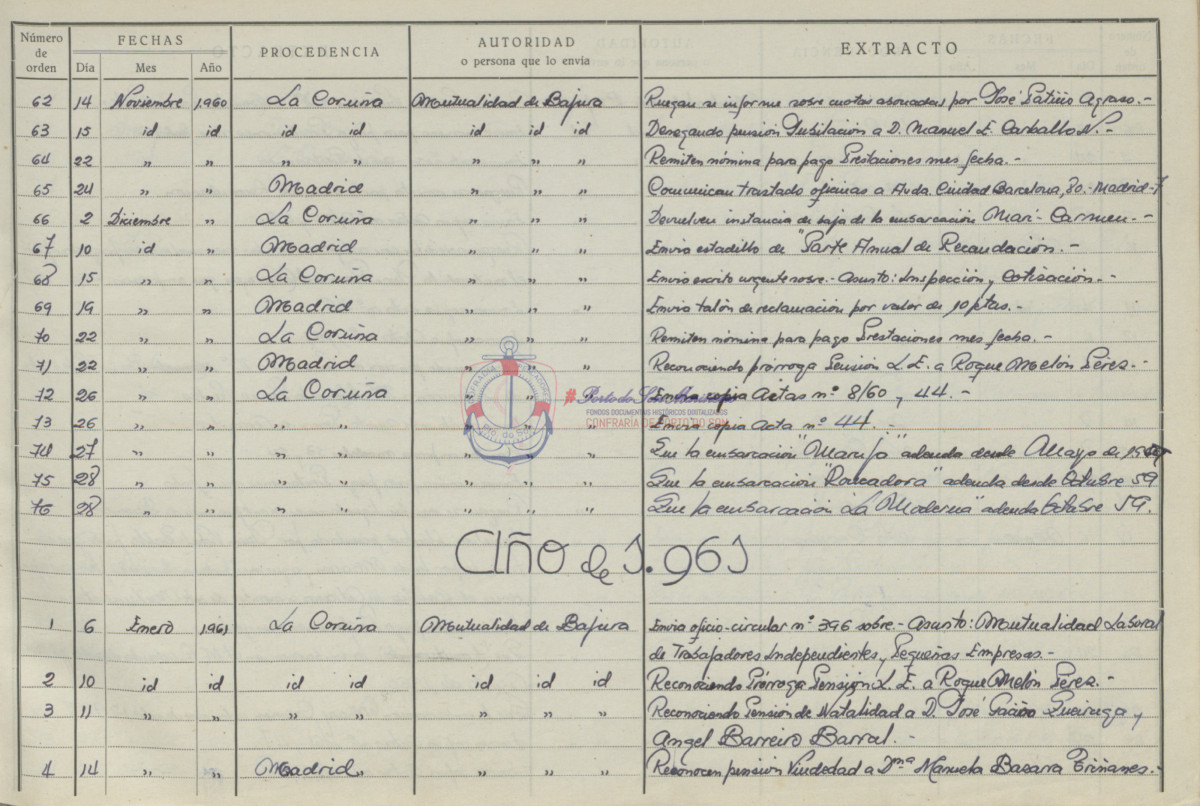 Número de orden FECHAS PROCEDENCIA AUTORIDAD o persona que lo envía EXTRACTO
Día Mes Año
62 14 Noviembre 1.960 La Coruña Mutualidad de Bajura Ruegan se informe sobre cuotas abonadas por José Patiño Agraso.-
63 15 id id id id id id id Denegando pensión Jubilación a D. Manuel L. Carballo N.-
64 22 " " " " " " " Remiten nómina para pago Prestaciones mes fecha.-
65 24 " " Madrid " " " Comunican traslado oficinas a Avda. Ciudad Barcelona, 80.-Madrid-7
66 2 Diciembre " La Coruña " " " Devuelven instancia de baja de la embarcación Mari-Carmen.-
67 10 id " Madrid " " " Envia estadillo de "Parte Anual de Recaudación.-
68 15 " " La Coruña " " " Envia escrito urgente sobre.- Asunto: Inspección y Cotización.-
69 19 " " Madrid " " " Envia talón de reclamación por valor de 10 ptas.-
70 22 " " La Coruña " " " Remiten nómina para pago Prestaciones mes fecha.-
71 22 " " Madrid " " " Reconociendo prórroga Pensión L.E. a Roque Melón Pérez.-
72 26 " " La Coruña " " Envia copia Actas nº 8/60 y 44.-
73 26 " " " " " " " Envia copia Acta nº 44.-
74 27 " " " " " " " Que la embarcación "Maruja" adeuda desde Mayo de
75 28 " " " " " " " Que la embarcación adeuda desde Octubre 59
76 28 " " " " " " " Que la embarcación La Moderna" adeuda Octubre 59.
Año de 1.961
1 6 Enero 1.961 La Coruña Mutualidad de Bajura Envia oficio-circular nº 396 sobre.- Asunto: Mutualidad Laboral
de Trabajadores Independientes y Pequeñas Empresas.-
2 10 id id id id id id id Reconociendo Prórroga Pensión L.E. a Roque Melón Pérez.-
3 11 " " " " " " " Reconociendo Pensión de Natalidad a D. José Queiruga y
Angel Barreiro Barral.-
4 14 " " Madrid " " " " Reconocen pensión Viudedad a Dña Manuela Bazarra Triñanes.-
CONFRARIA DE PORTO DO SON
FONDOS DOCUMENTAIS HISTÓRICOS DIGITALIZADOS
Pto. do Son